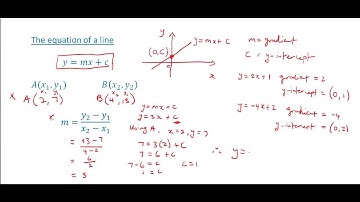 The equation of a line
y = mx + c
y
(0,C)
y=mx+c
x
m=gradient
C = y-intercept
y=2x+1 gradient=2
y-intercept = (0,1)
y=-4x+2 gradient=-4
y-intercept = (0,2)
A(x₁,y₁) B(x₂,y₂)
x A(2,7) B(4,13)
m = (y₂ − y₁)/(x₂ − x₁)
= (13-7)/(4-2)
= 6/2
= 3
y=mx+c
y=3x+c
Using A, x=2, y=7
7=3(2)+c
7=6+c
7-6=c c=1
1=c
∴ y=